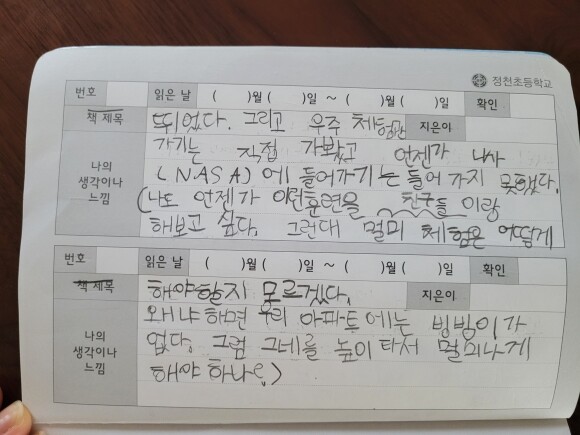 정천초등학교
번호 읽은 날 ( )월( )일 ~ ( )월( )일 확인
책 제목 뛰었다. 그리고 우주 체험관 지은이
가기는 직접 가봤고 언젠가 나사
나의 생각이나 느낌 (NASA)에 들어가기는 들어 가지 못했다.
(나도 언젠가 이런훈련을 친구들이랑
해보고 싶다. 그런대 멀미 체험은 어떻게
번호 읽은 날 ( )월( )일 ~ ( )월( )일 확인
책 제목 해야할지 모르겠다. 지은이
왜냐하면 우리 아파트에는 빙빙이가
나의 생각이나 느낌 없다. 그럼 그네를 높이 타서 멀미나게
해야 하나?)